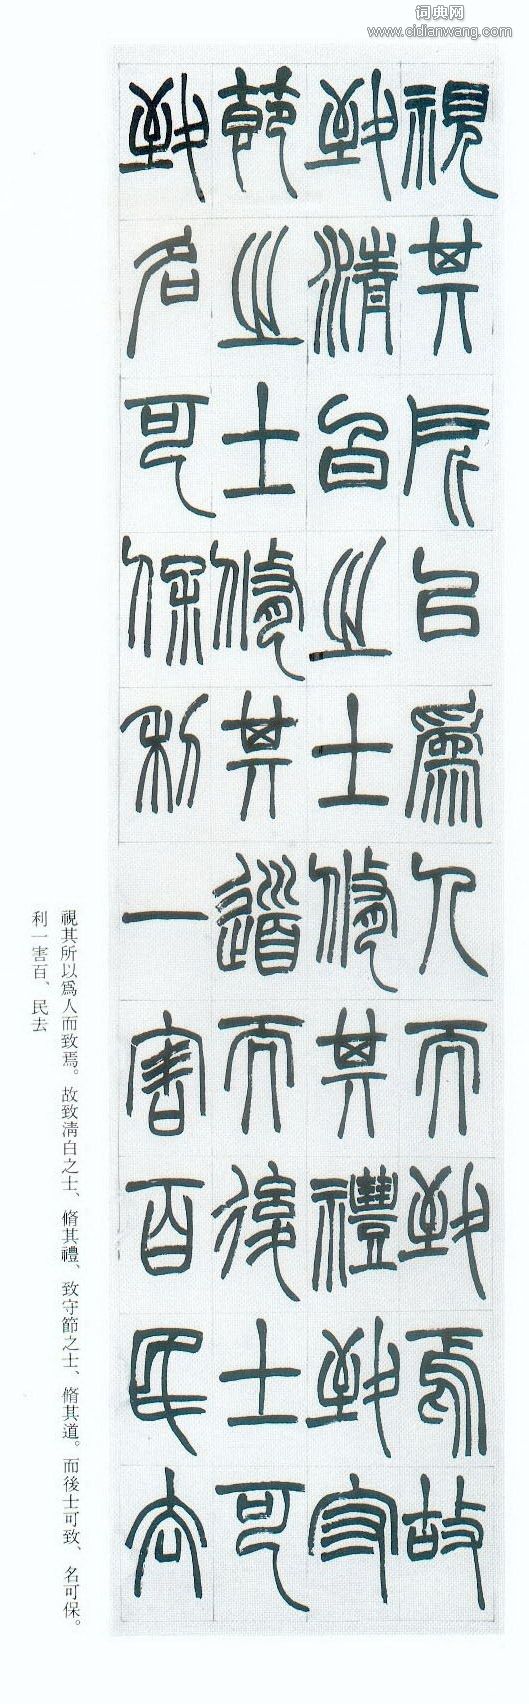 词典网
www.cidianwang.com
視其所以爲人而致焉故
致清白之士脩其禮致守
節之士脩其道而後士可
致名可保利一害百民去
視其所以爲人而致焉。故致淸白之士、脩其禮、致守節之士、脩其道。而後士可致、名可保。
利一害百、民去